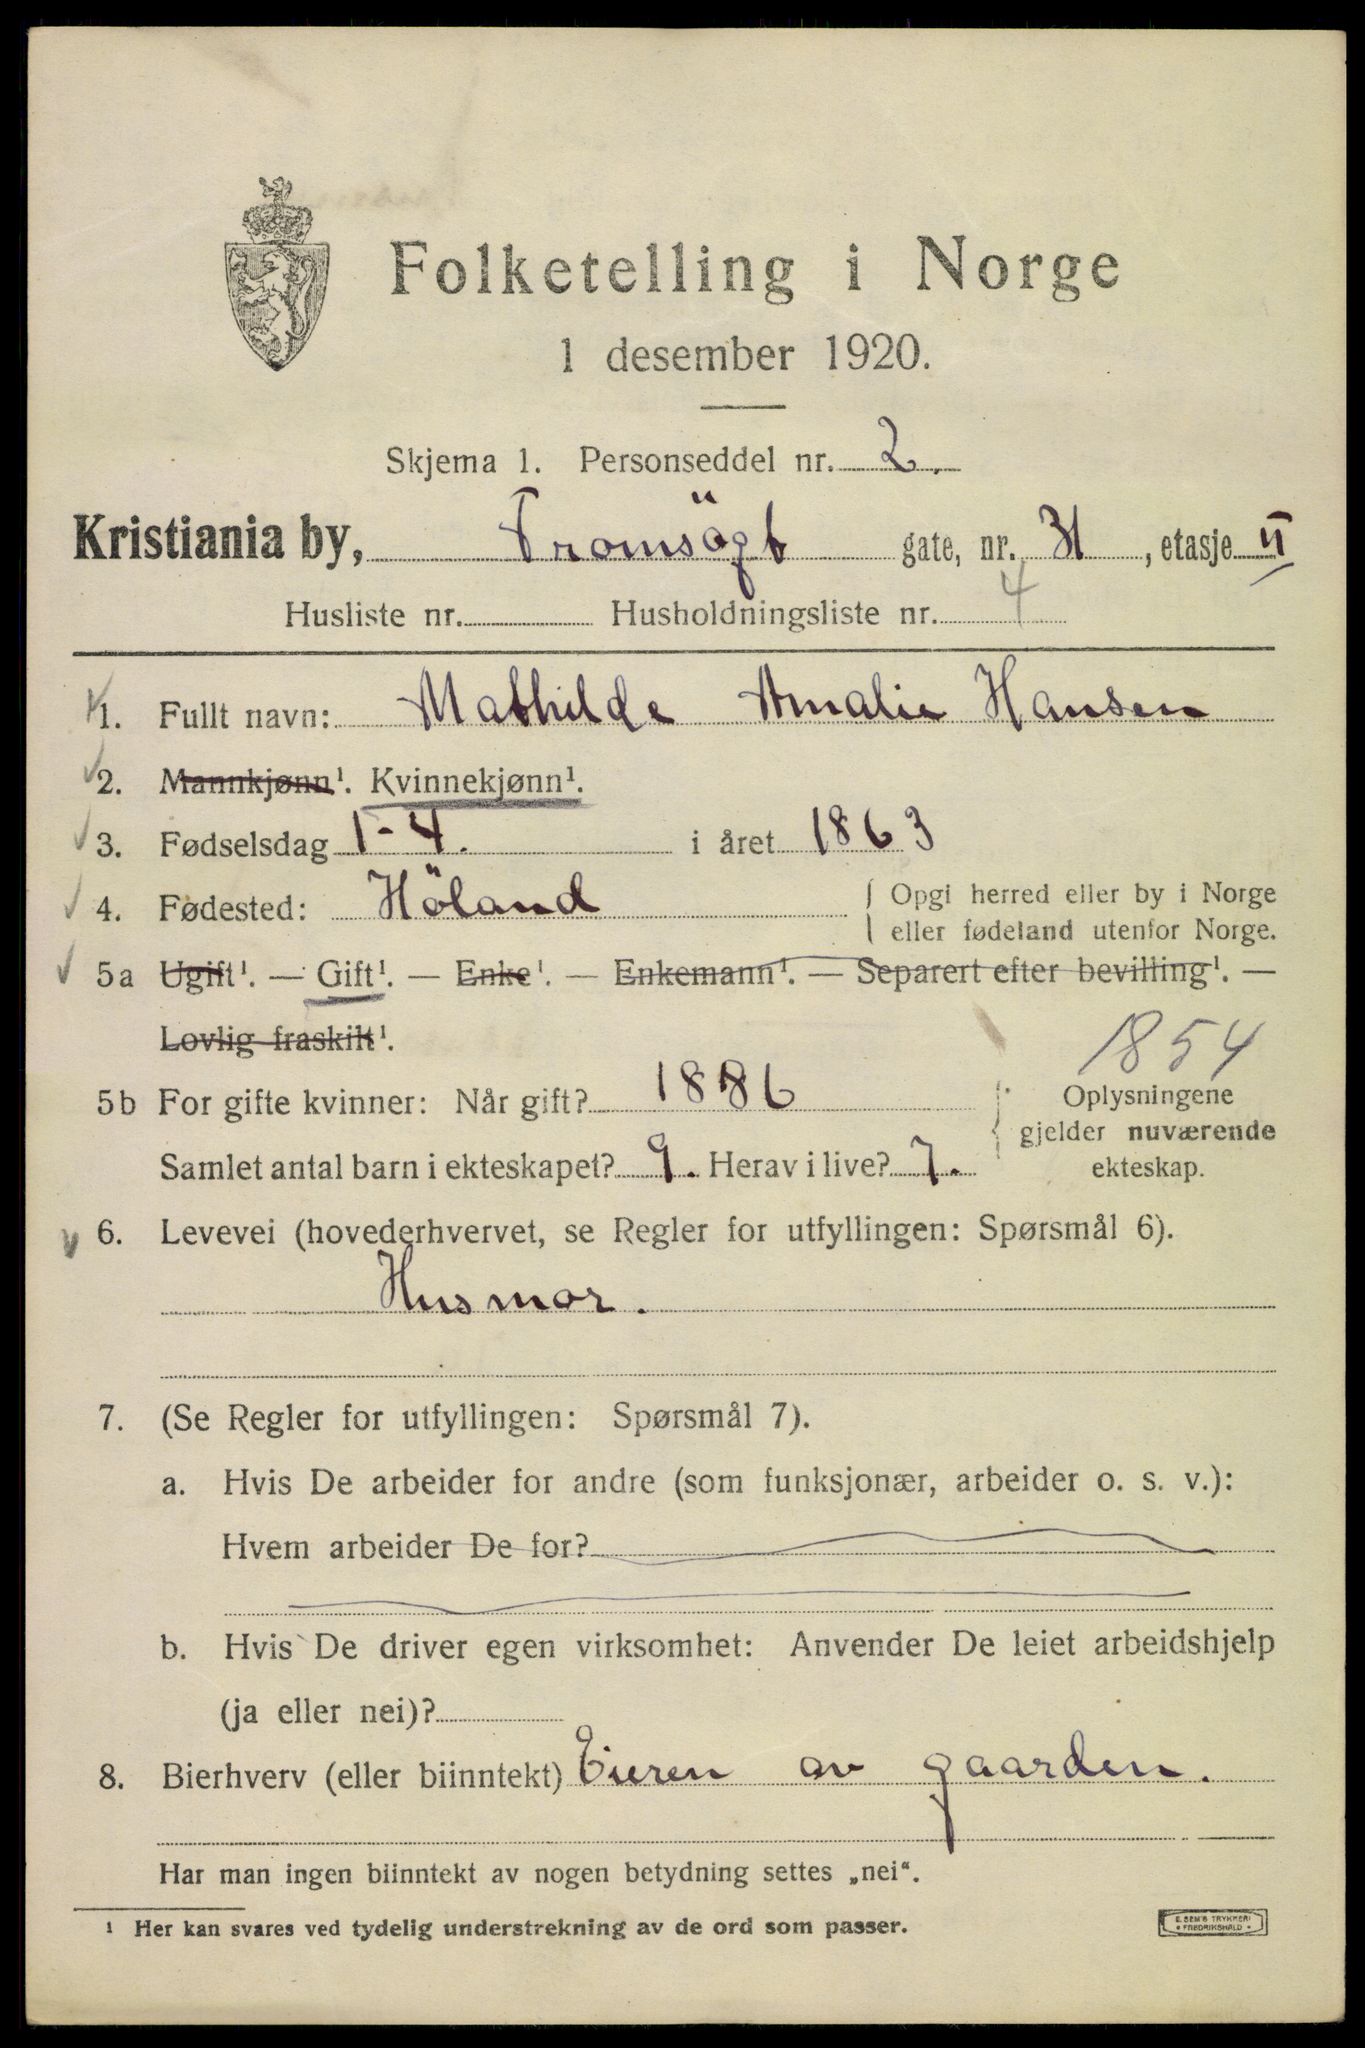 Folketelling i Norge
1 desember 1920.
Skjema 1. Personseddel nr. 2.
Kristiania by, Tromsögt gate, nr. 31, etasje II
Husliste nr. Husholdningsliste nr. 4
1. Fullt navn: Mathilde Amalie Hansen
2. Mannkjønn¹. Kvinnekjønn¹.
3. Fødselsdag 1-4. i året 1863
4. Fødested: Höland
Opgi herred eller by i Norge
eller fødeland utenfor Norge.
5a Ugift¹. — Gift¹. — Enke¹. — Enkemann¹. — Separert efter bevilling¹. —
Lovlig fraskilt¹.
1854
5b For gifte kvinner: Når gift? 1886
Samlet antal barn i ekteskapet? 9. Herav i live? 7.
Oplysningene
gjelder nuværende
ekteskap.
6. Levevei (hovederhvervet, se Regler for utfyllingen: Spørsmål 6).
Husmor.
7. (Se Regler for utfyllingen: Spørsmål 7).
a. Hvis De arbeider for andre (som funksjonær, arbeider o. s. v.):
Hvem arbeider De for?
b. Hvis De driver egen virksomhet: Anvender De leiet arbeidshjelp
(ja eller nei)?
8. Bierhverv (eller biinntekt) Eieren av gaarden.
Har man ingen biinntekt av nogen betydning settes „nei“.
¹ Her kan svares ved tydelig understrekning av de ord som passer.
E. SEM'S TRYKKERI
• FREDRIKSHALD •